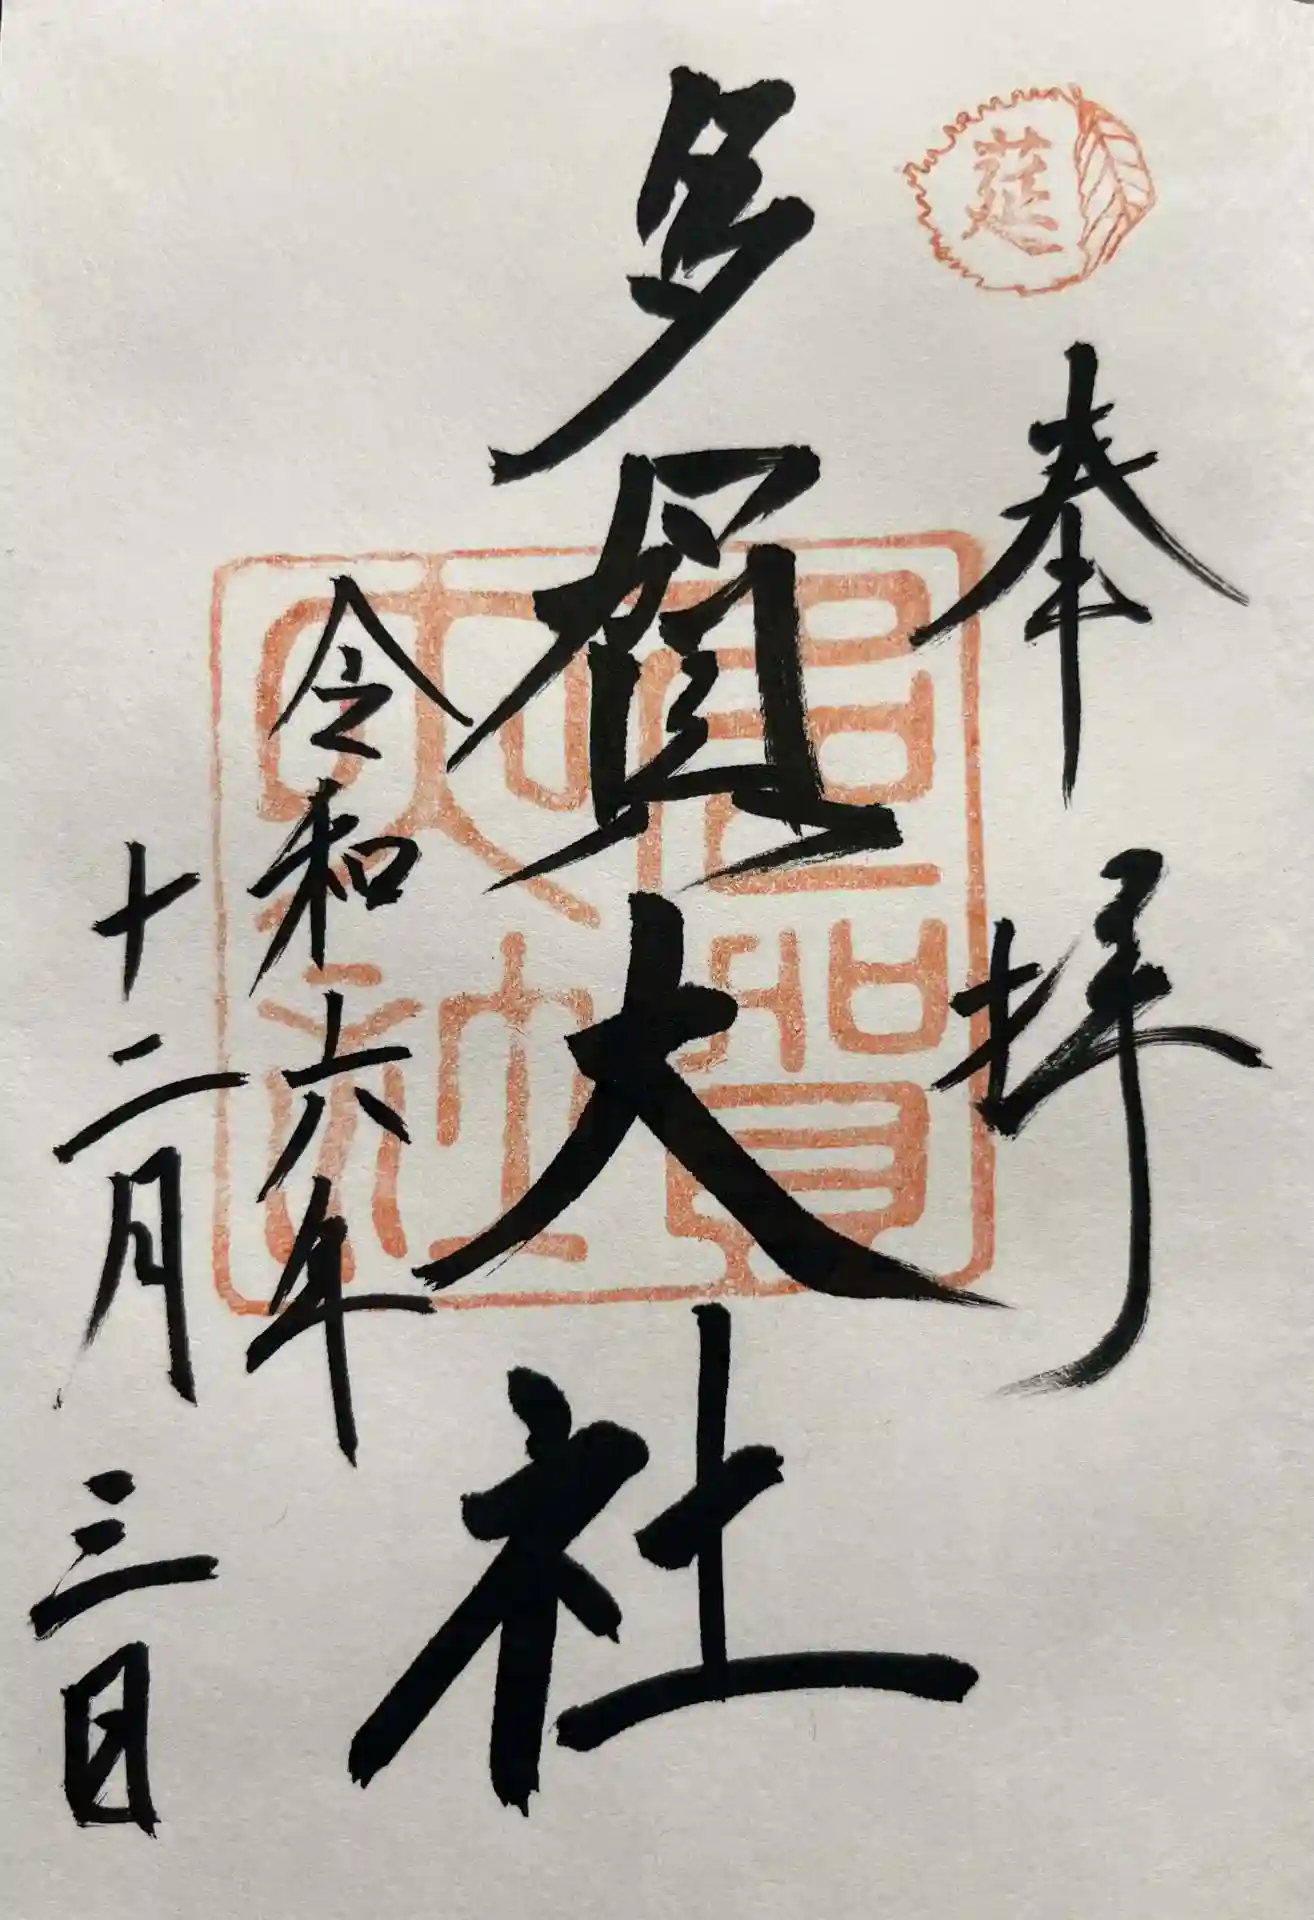 莚
奉拝
多賀大社
多賀大社
令和六年
十二月三日